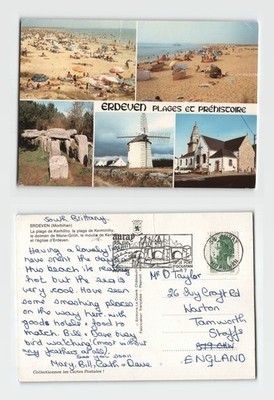 ERDEVEN PLAGES ET PRÉHISTOIRE
South Brittany.
ERDEVEN (Morbihan)
La plage de Kerhillio, la plage de Kerminihy,
le dolmen de Mane-Groh, le moulin de
et l'église d'Erdeven.
Having a lovely
have spent the day
this beach its really
hot, but the sea is
very cool. Have seen
some smashing places
on the way here, with
good hotels & food to
match. Bill & Dave busy
bird watching (most without
any feathers at all).
See you soon
Mary, Bill, & Dave
Collectionnez les Cartes Postales !
Mr D Taylor
26 Croyt Rd
Warton
Tamworth
Staffs
ENGLAND